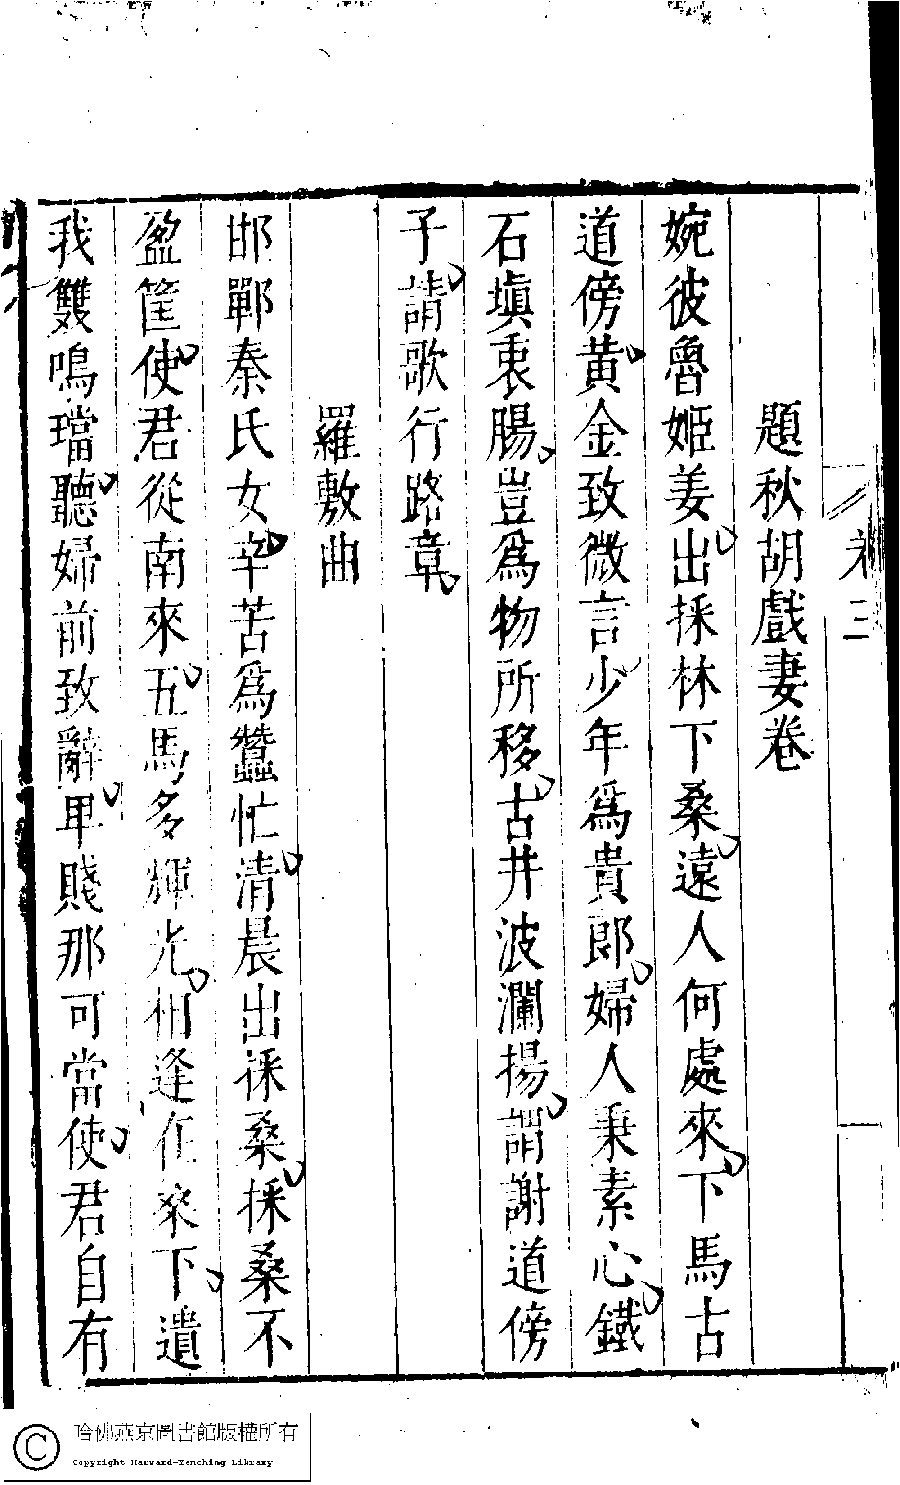 題秋胡戲妻卷
婉彼魯姬姜出採林下桑遠人何處來下馬古
道傍黃金致微言少年爲貴郎婦人秉素心鐵
石塡衷腸豈爲物所移古井波瀾揚謂謝道傍
子請歌行路章
羅敷曲
邯鄲秦氏女辛苦爲蠶忙清晨出採桑採桑不
盈筐使君從南來五馬多輝光相逢在桒下遺
我雙鳴璫聽婦前致辭卑賤那可當使君自有
哈佛燕京圖書館版權所有
Copyright Harvard-Yenching Library